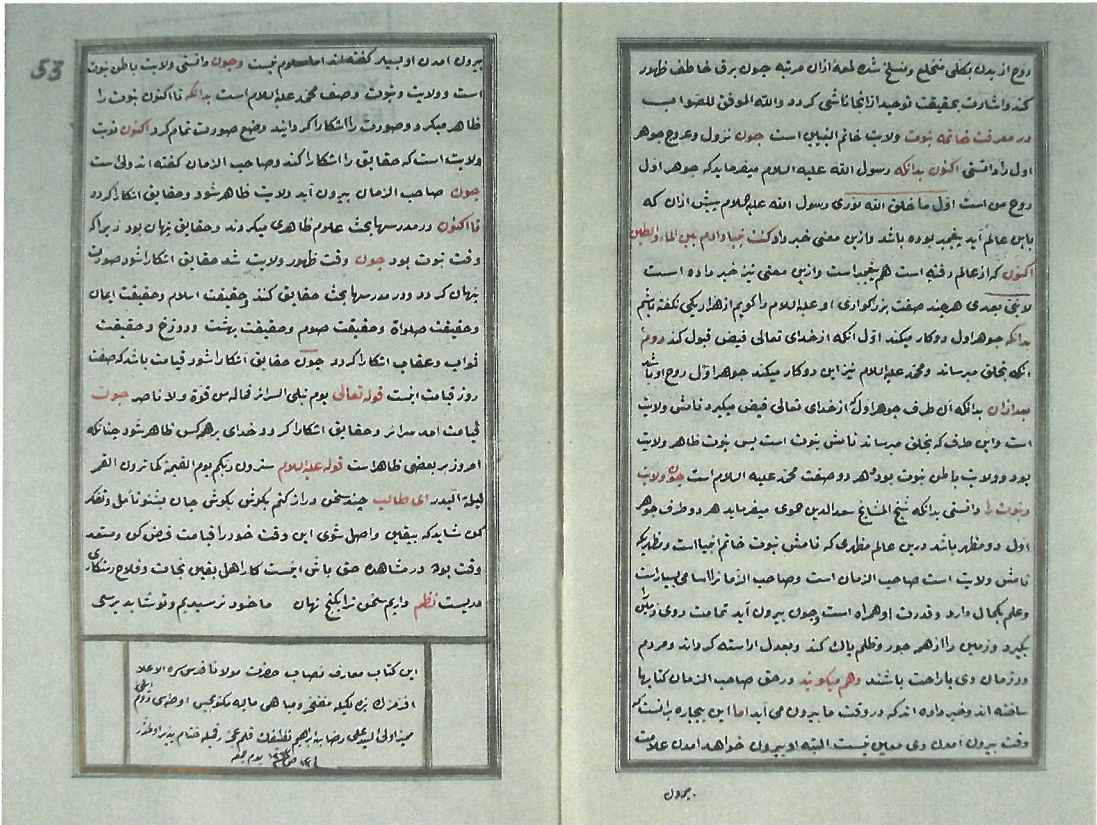 روح از بدن بکلی منخلع ومنسلخ شده لمعه ازان مرتبه چون برق خاطف ظهور
کند واشارت بحقیقت توحید از انجا ناشی کردد والله الموفق للصواب
در معرفت خاتمه نبوت ولایت خاتم النبیین است چون نزول وعروج جوهر
اول را دانستی اکنون بدانکه رسول الله علیه السلام میفرماید که جوهر اول
روح من است اول ما خلق الله نوری رسول الله علیه السلام پیش ازان که
باین عالم آید پیغمبر بوده باشد وازین معنی خبر داد کنت نبیا وادم بین الماء والطین
اکنون که از عالم رفته است هم پیغمبر است وازین معنی نیز خبر داده است
لا نبی بعدی هر چند صفت بزرکواری او علیه السلام را کویم از هزار یکی نکفته باشم
بدانکه جوهر اول دو کار میکند اول انکه از خدای تعالی فیض قبول کند دوم
انکه بخلق میرساند ومحمد علیه السلام نیز این دو کار میکند جوهر اول روح او باشد
بعد ازان بدانکه آن طرف جوهر اول که از خدای تعالی فیض میکیرد نامش ولایت
است واین طرف که بخلق میرساند نامش نبوت است پس نبوت ظاهر ولایت
بود وولایت باطن نبوت بود هر دو صفت محمد علیه السلام است چون ولایت
ونبوت را دانستی بدانکه شیخ المشایخ سعد الدین حموی میفرماید هر دو طرف جوهر
اول دو مظهر باشد درین عالم مظهری که نامش نبوت خاتم انبیا است ومظهریکه
نامش ولایت است صاحب الزمان است وصاحب الزمانرا اسامی بسیار است
وعلم بکمال دارد وقدرت او همراه است وچون بیرون آید تمامت روی زمین را
بکیرد وزمین را از هر جور وظلم پاك کند وبعدل اراسته کرداند ومردم
در زمان وی با راحت باشند وهم میکویند در حق صاحب الزمان کتابها
ساخته اند وخبر داده اند که در وقت ما بیرون می آید اما این بیچاره برانست که
وقت بیرون آمدن وی معین نیست البته او بیرون خواهد امدن علامت
بیرون
53
بیرون امدن او بسیار کفته اند اما معلوم نیست وچون دانستی ولایت باطن نبوت
است وولایت ونبوت وصف محمد علیه السلام است بدانکه تا اکنون نبوت را
ظاهر میکرد وصورت را اشکارا کردانید وضع صورت تمام کرد اکنون نوبت
ولایت است که حقایق را اشکارا کند وصاحب الزمان کفته اند ولی است
چون صاحب الزمان بیرون آید ولایت ظاهر شود وحقایق اشکارا کردد
تا اکنون در مدرسها بحث علوم ظاهری میکردند وحقایق پنهان بود زیرا که
وقت نبوت بود چون وقت ظهور ولایت شد حقایق اشکارا شود صورت
پنهان کردد ودر مدرسها بحث حقایق کنند وحقیقت اسلام وحقیقت ایمان
وحقیقت صلواة وحقیقت صوم وحقیقت بهشت ودوزخ وحقیقت
ثواب وعقاب اشکارا کردد چون حقایق اشکارا شود قیامت باشد که صفت
روز قیامت اینست قوله تعالی یوم تبلی السرائر فما له من قوة ولا ناصر چون
قیامت امد سرائر وحقایق اشکارا کردد خدای بر هر کس ظاهر شود چنانکه
امروز بر بعضی ظاهر است قوله علیه السلام سترون ربکم یوم القیمة کما ترون القمر
لیلة البدر ای طالب چند سخن دراز کنم بکوش بکوش جان بشنو تأمل وتفکر
کن شاید که بیقین واصل شوی این وقت خود را قیامت فرض کن ومستعد
وقت بوده در مشاهده حق باش اینست کار اهل یقین نجات وفلاح رستکاری
در نیست نظم دادیم سخن ترا بکنج نهان ما خود نرسیدیم وتو شاید برسی
این کتاب معارف نصاب حضرت مولانا قدس سره الاعلا
السید علی رضا بن ابراهیم
یوم جمعه